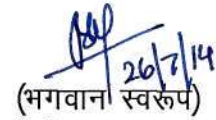 26/7/14
(भगवान स्वरूप)